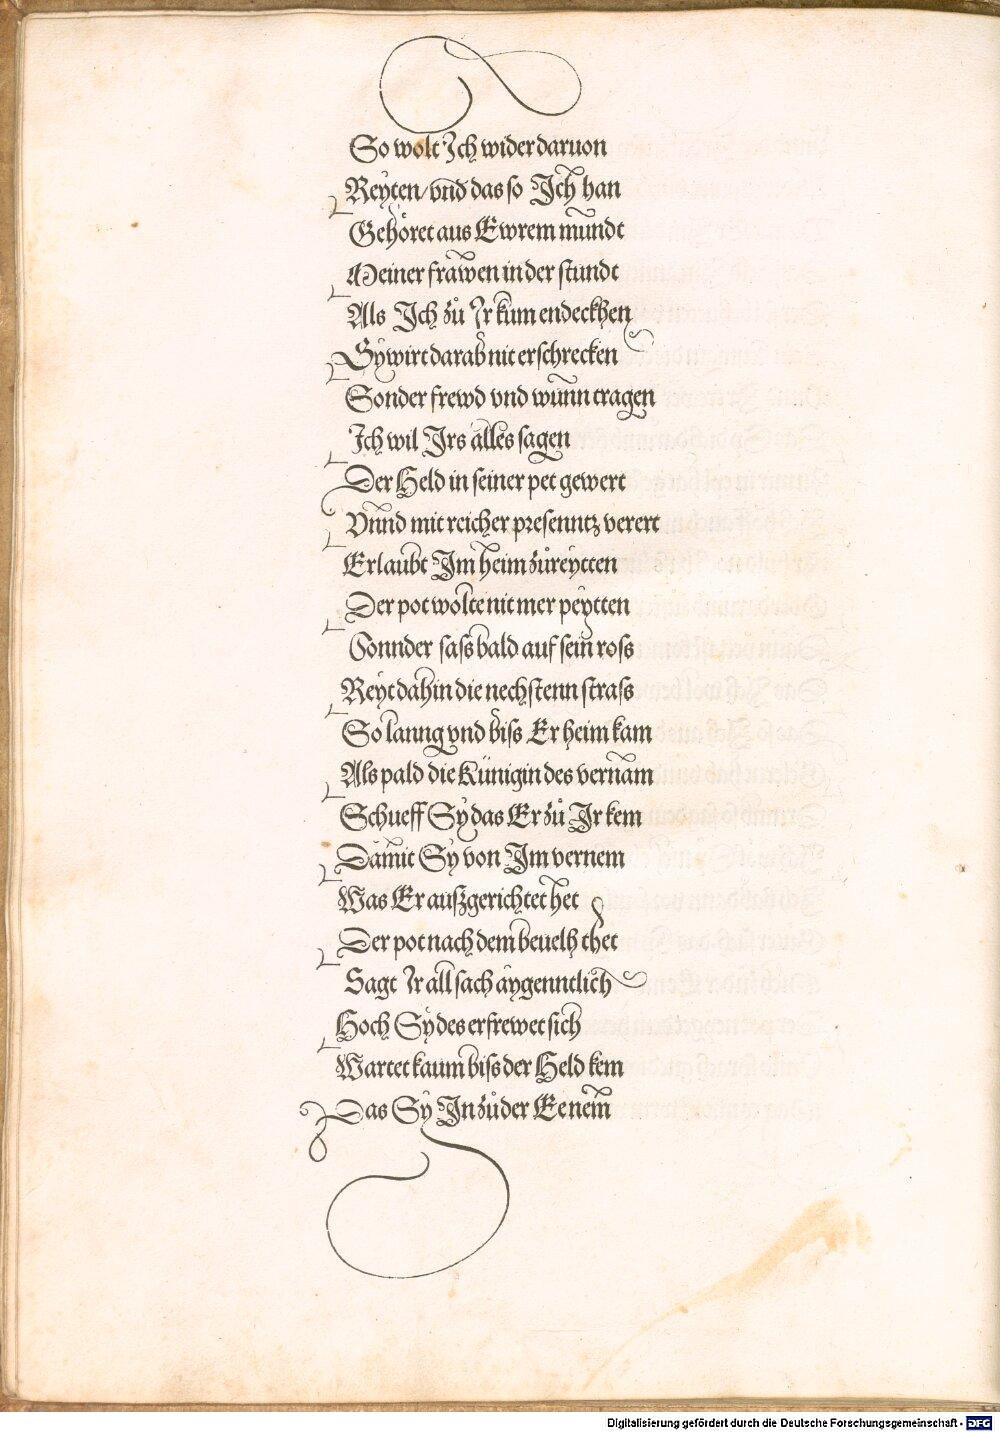 So wolt Ich wider daruon
Reyten/ vnd das so Ich han
Gehöret aus Ewrem mundt
Meiner frawen in der stundt
Als Ich zů Ir kum endeckhen
Sy wirt darab nit erschrecken
Sonder frewd vnd wunn tragen
Ich wil Irs alles sagen
Der Held in seiner pet gewert
Vnnd mit reicher presenntz verert
Erlaubt Im heim zůreytten
Der pot wolte nit mer peytten
Sonnder sass bald auf sein ross
Reyt dahin die nechstenn strass
So lanng vnd biss Er heim kam
Als pald die Künigin des vernam
Schueff Sy das Er zů Ir kem
Damit Sy von Im vernem
Was Er außgerichtet het
Der pot nach dem beuelh thet
Sagt Ir all sach aygenntlich
Hoch Sy des erfrewet sich
Wartet kaum biss der Held kem
Das Sy In zů der Ee nem
Digitalisierung gefördert durch die Deutsche Forschungsgemeinschaft - DFG